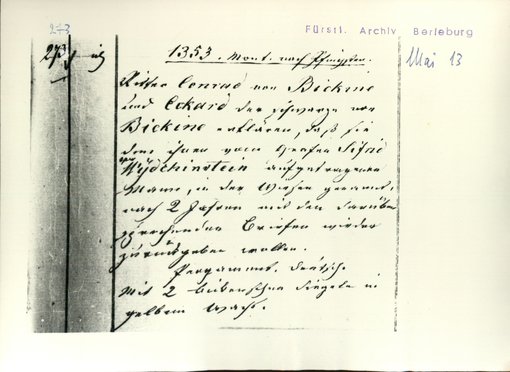 273
Fürstl. Archiv Berleburg
Mai 13
273
1353. Mont. nach Pfingsten.
Ritter Conrad von Bickine
und Eckard der schwarze von
Bickine erklären, daß sie
den ihnen vom Grafen Sifrid
von Wydchinstein aufgetragenen
Mann, in der Wiesen genannt,
nach 2 Jahren mit den darüber
sprechenden Briefen wieder
zurückgeben wollen.
Pergament. Deutsch.
Mit 2 Siegeln in
gelbem Wachs.